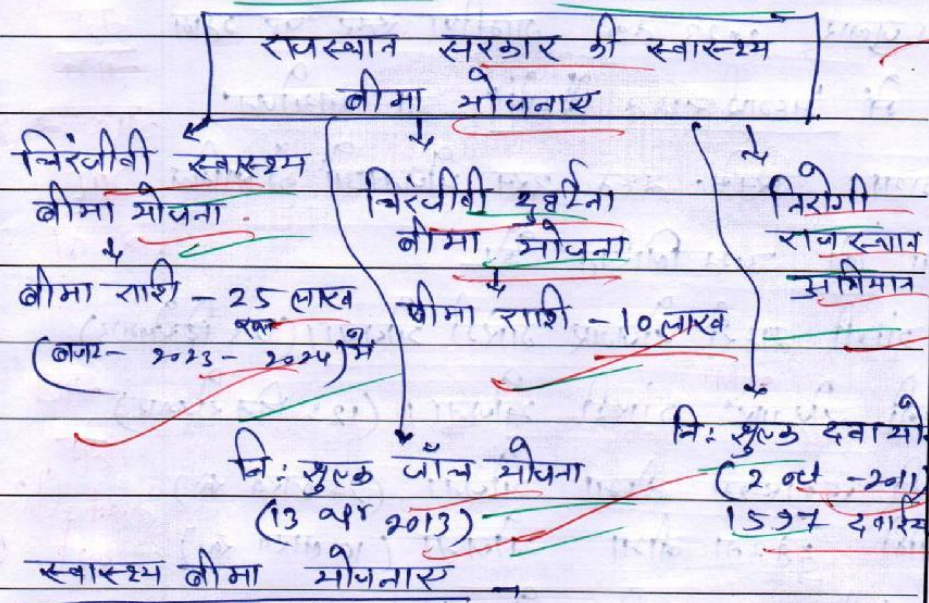 राजस्थान सरकार की स्वास्थ्य
बीमा योजनाए
चिरंजीवी स्वास्थ्य
बीमा योजना
बीमा राशि - 25 लाख
(बजट - 2023 - 2024) में
चिरंजीवी दुर्घटना
बीमा योजना
बीमा राशि - 10 लाख
निरोगी
राजस्थान
अभियान
नि: शुल्क जाँच योजना
(13 अप्रै 2013)
नि: शुल्क दवा यो
(2 अक्टू - 2011)
1597 दवाईय
स्वास्थ्य बीमा योजनाए -